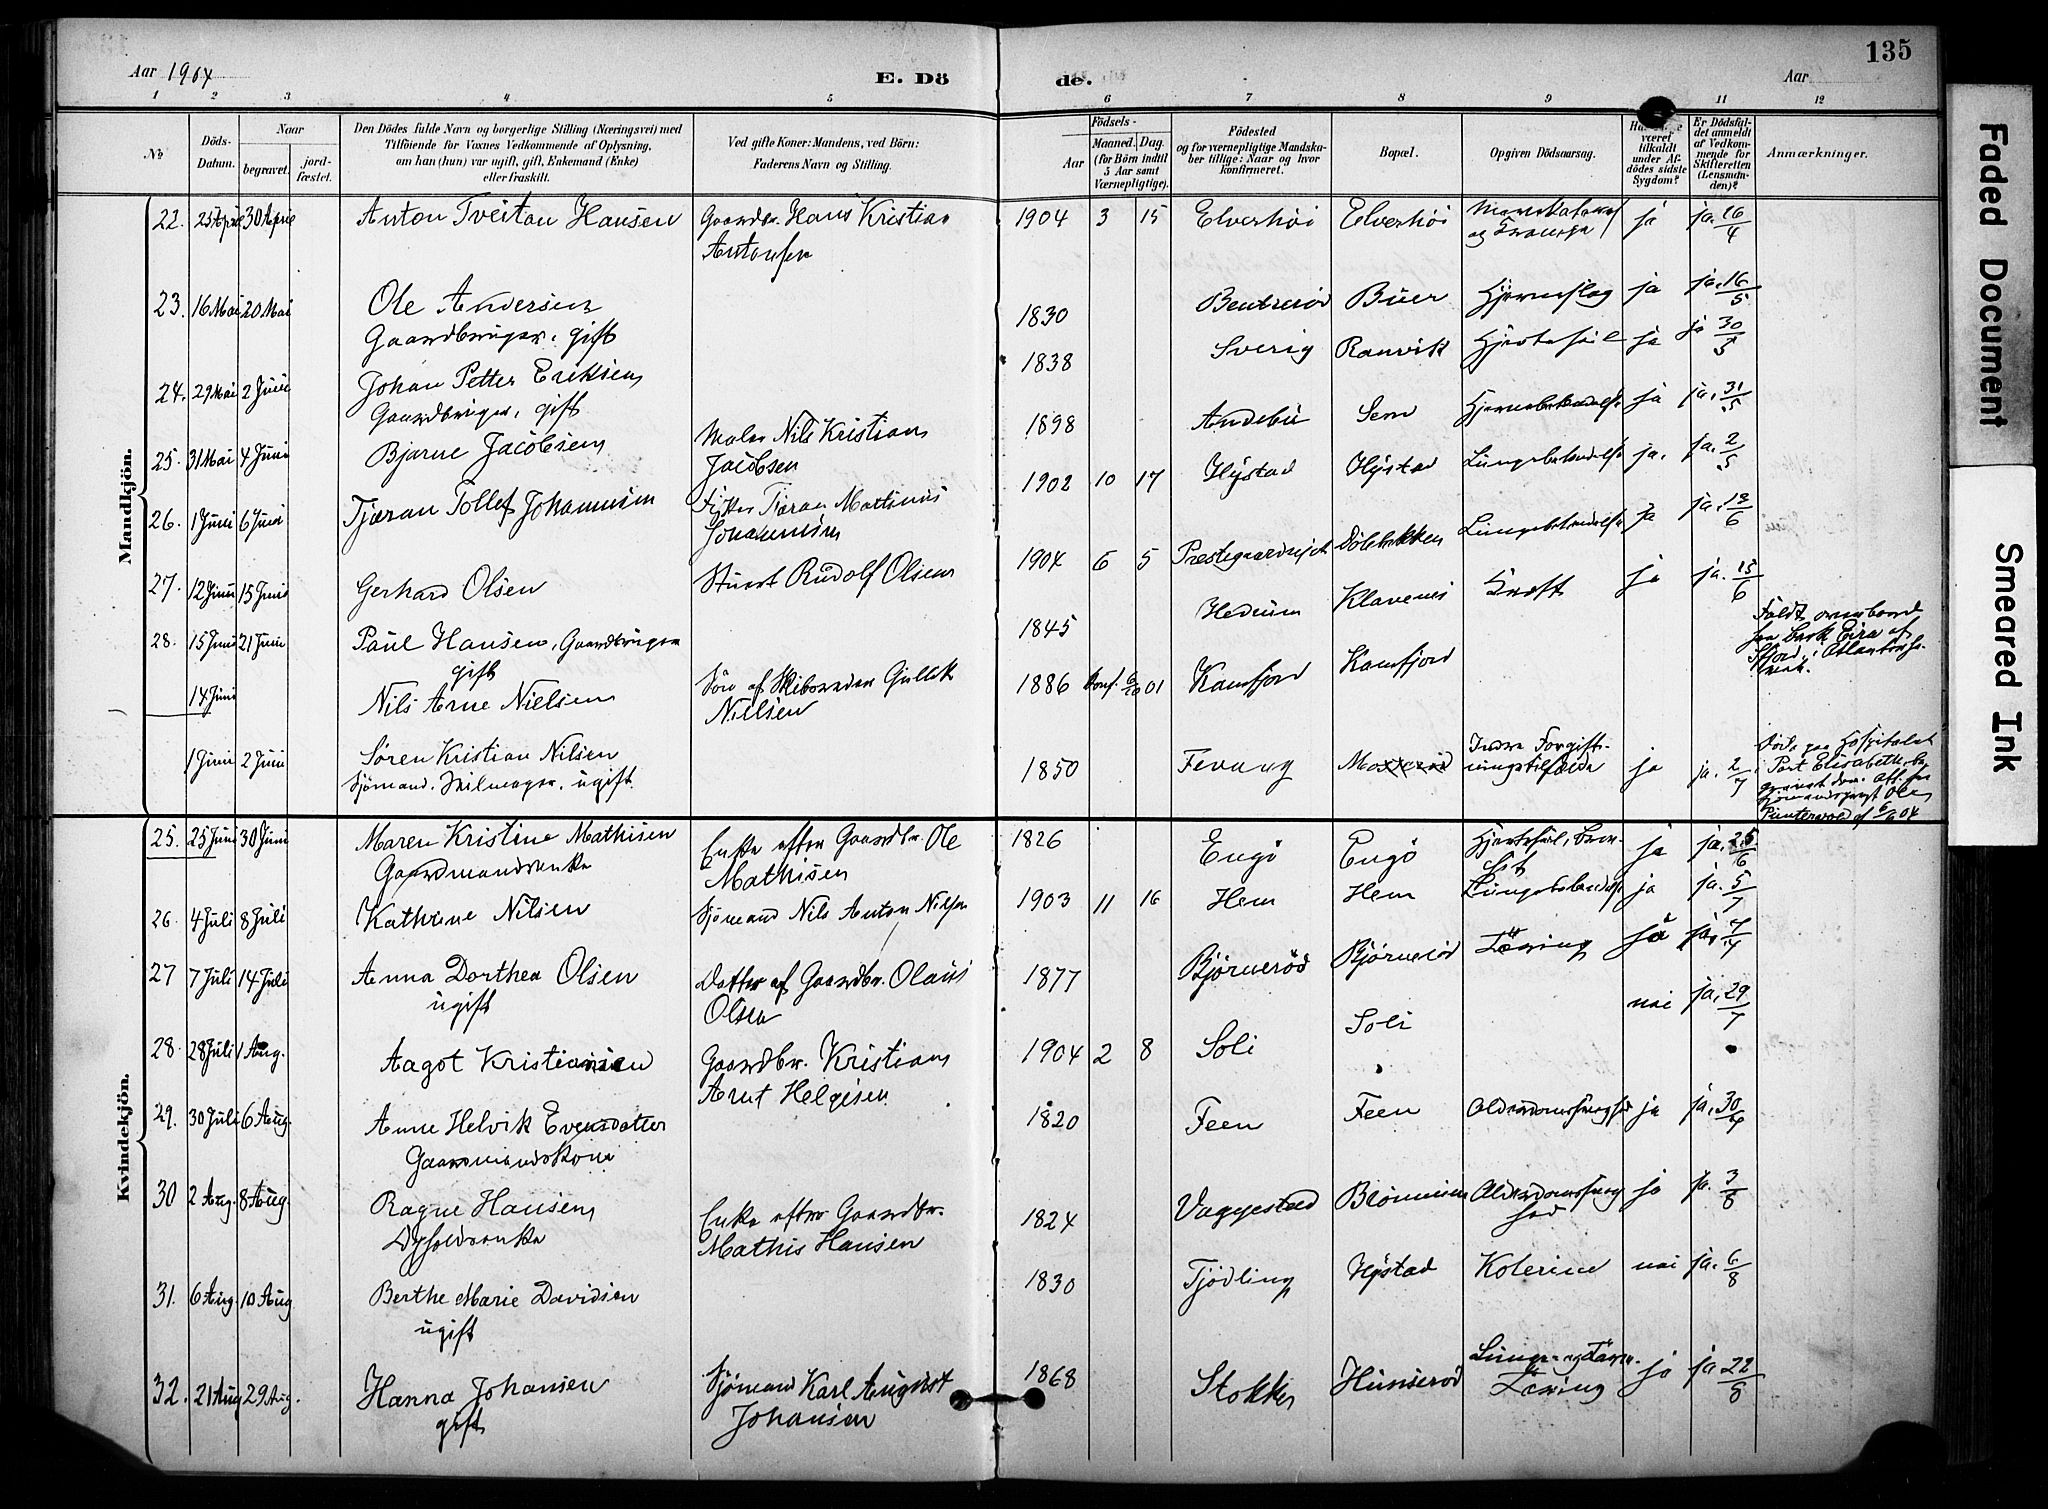 135
Aar 1904
E. Dö de.
Aar
1 2 3 4 5 6 7 8 9 11 12
No
Döds-Datum.
Naar
begravet. jord-fæstet.
Den Dödes fulde Navn og borgerlige Stilling (Næringsvei) med
Tilföiende for Voxnes Vedkommende af Oplysning,
om han (hun) var ugift, gift, Enkemand (Enke)
eller fraskilt.
Ved gifte Koner: Mandens, ved Börn:
Faderens Navn og Stilling.
Födsels-
Aar
Maaned. Dag.
(for Börn indtil
5 Aar samt
Værnepligtige).
Födested
og for værnepligtige Mandska-
ber tillige: Naar og hvor
konfirmeret.
Bopæl.
Opgiven Dödsaarsag.
været
tilkaldt
under Af-
dödes sidste
Sygdom?
Er Dödsfal-
det anmeldt
af Vedkom-
mende for
Skifteretten
(Lensman-
den)?
Anmærkninger.
Mandkjön.
22. 25 April 30 April Anton Tveitan Hansen Gaardbr. Hans Kristian 1904 3 15 Elverhöi Elverhöi ja ja. 16/4
Antonsen
23. 16 Mai 20 Mai Ole Andersen 1830 Bentserød Buer Hjerneslag ja ja. 16/5
Gaardbruger, gift
24. 29 Mai 2 Juni Johan Petter Eriksen 1838 Sverig Ranvik Hjertefeil ja ja 30/5
Gaardbruger, gift
25. 31 Mai 4 Juni Bjarne Jacobsen Maler Nils Kristian 1898 Andebu Sem Hjernebetændelse ja ja. 31/5
Jacobsen
26. 1 Juni 6 Juni Tjæran Tollef Johannesen Tjæran Mathinus 1902 10 17 Hystad Hystad Lungebetændelse ja. ja. 2/5
Johannesen
27. 12 Juni 15 Juni Gerhard Olsen Stuert Rudolf Olsen 1904 6 5 Dölebakken Lungebetændelse ja ja. 12/6
28. 15 Juni 21 Juni Paul Hansen, Gaardbruger 1845 Hedrum Klavenes Kræft ja ja. 15/6
gift
14 Juni Nils Arne Nielsen Sön af Skibsreder Gullik 1886 Konf. 6/10 01 Kamfjord Kamfjord
Nielsen
Faldt overbord
fra Bark Eira af
Sfjord, i Atlanterha-
vet.
1 Juni 2 Juni Søren Kristian Nilsen 1850 Fevang Indre Forgift-
Sjömand, Seilmager, ugift ningstilfælde ja ja. 2/7
Död paa Hospitalet
i Port Elisabeth, be-
gravet der. Att. fra
Sjömandspræst Ole
Kvindekjön.
25. 25 Juni 30 Juni Maren Kristine Mathisen Enke efter Gaardbr. Ole 1826 Engö Engö Hjertefeil, Bron- ja ja. 25/6
Gaardmandsenke Mathisen
26. 4 Juli 8 Juli Kathrine Nilsen Sjömand Nils Anton Nilsen 1903 11 16 Hem Hem Lungebetændelse ja ja. 5/7
27 7 Juli 14 Juli Anna Dorthea Olsen Datter af Gaardbr. Olaus 1877 Björneröd Björneröd Tæring ja ja. 7/7
ugift Olsen
28. 28 Juli 1 Aug. Aagot Kristiansen Gaardbr. Kristian 1904 2 8 Soli Soli nei ja. 29/7
Arnt Helgesen
29. 30 Juli 6 Aug. Anne Helvik Evensdatter 1820 Feen Feen Alderdomssvaghed ja ja. 30/7
Gaardmandskone
30 2 Aug. 8 Aug. Ragne Hansen Enke efter Gaardbr. 1824 Vaggestad Brönnum Alderdomssvag- ja ja. 3/8
Mathis Hansen hed
31. 6 Aug. 10 Aug Berthe Marie Davidsen 1830 Tjödling Hystad Kolerine nei ja. 6/8
ugift
32. 21 Aug 29 Aug. Hanna Johansen Sjömand Karl August 1868 Stokke Hunseröd Lunge- og Tarm- ja ja 22/8
gift Johansen Tæring
Faded Document
Smeared Ink